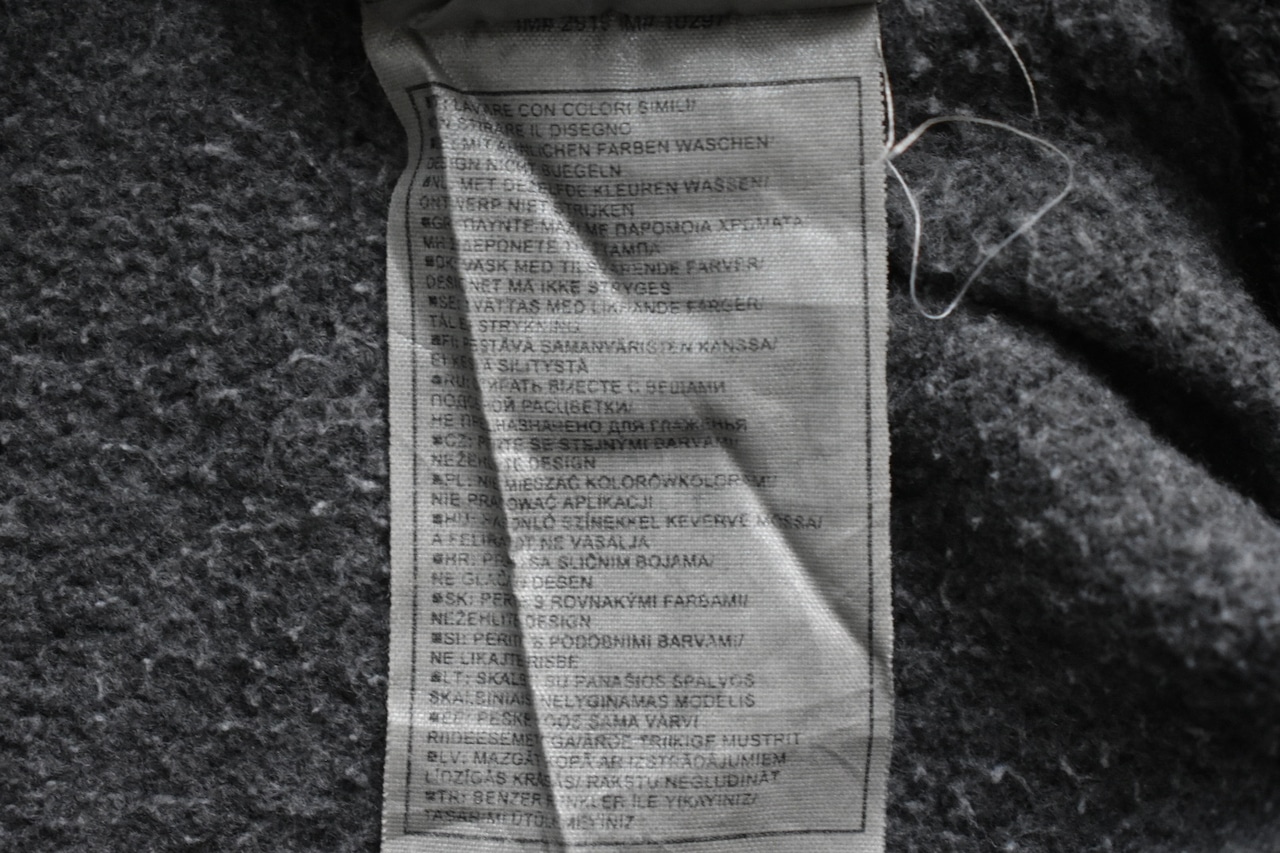 LAVARE CON COLORI SIMILI/
STIRARE IL DISEGNO
MIT ÄHNLICHEN FARBEN WASCHEN/
DESIGN NICHT BUEGELN
NL: MET DEZELFDE KLEUREN WASSEN/
ONTWERP NIET STRIJKEN
GR: ΠΛΥΝΤΕ ΜΑΖΙ ΜΕ ΠΑΡΟΜΟΙΑ ΧΡΩΜΑΤΑ
ΜΗ ΣΙΔΕΡΩΝΕΤΕ ΤΗ ΣΤΑΜΠΑ
DK: VASK MED TILSVARENDE FARVER/
DESIGNET MÅ IKKE STRYGES
SE: TVÄTTAS MED LIKNANDE FÄRGER/
STRYKNING
FI: PESTÄVÄ SAMANVÄRISTEN KANSSA/
EI SILITYSTÄ
RU: СТИРАТЬ ВМЕСТЕ С ВЕЩАМИ
ПОДОБНОЙ РАСЦВЕТКИ/
НЕ ПРЕДНАЗНАЧЕНО ДЛЯ ГЛАЖЕНЬЯ
CZ: PERTE SE STEJNÝMI BARVAMI/
NEŽEHLITE DESIGN
PL: NIE MIESZAĆ KOLORÓW
NIE PRASOWAĆ APLIKACJI
HU: HASONLÓ SZÍNEKKEL KEVERVE MOSSA/
A FELIRATOT NE VASALJA
HR: PRATI SA SLIČNIM BOJAMA/
NE GLAČATI DESEN
SK: PERTE S ROVNAKÝMI FARBAMI/
NEŽEHLITE DESIGN
SI: PERITE S PODOBNIMI BARVAMI/
NE LIKAJTE RISBE
LT: SKALBTI SU PANAŠIOS SPALVOS
SKALBINIAIS NELYGINAMAS MODELIS
EE: PESKE KOOS SAMA VÄRVI
RIIDEESEMETEGA/ÄRGE TRIIKIGE MUSTRIT
LV: MAZGĀT KOPĀ AR IZSTRĀDĀJUMIEM
LĪDZĪGĀS KRĀSĀS/ RAKSTU NEGLUDINĀT
TR: BENZER RENKLER İLE YIKAYINIZ/
TASARIMI ÜTÜLEMEYİNİZ